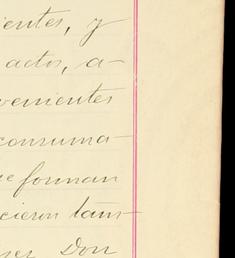 ientes, y
actos, a-
venientes
consuma-
ue forman
cieron tam-
ser Don